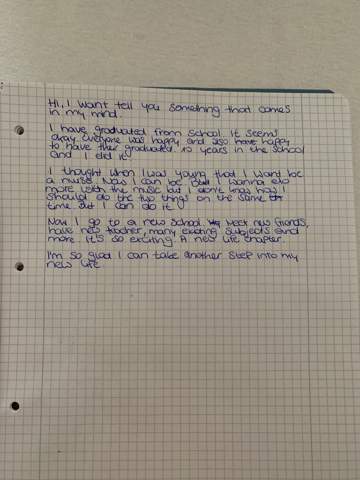 Hi, I want tell you something that comes
in my mind.
I have graduated from school. It seems
okay. Everyone was happy and also happy
to have their graduated. 10 years in the school
and I did it.
I thought when I was young that I want be
a nurse. Now I can be but I wanna do
more with the music but I don't know how I
should do the two things on the same
time but I can do it.
Now I go to a new school. Meet new friends,
have new teacher, many exciting subjects and
more. It's so exciting. A new life chapter.
I'm so glad I can take another step into my
new life.